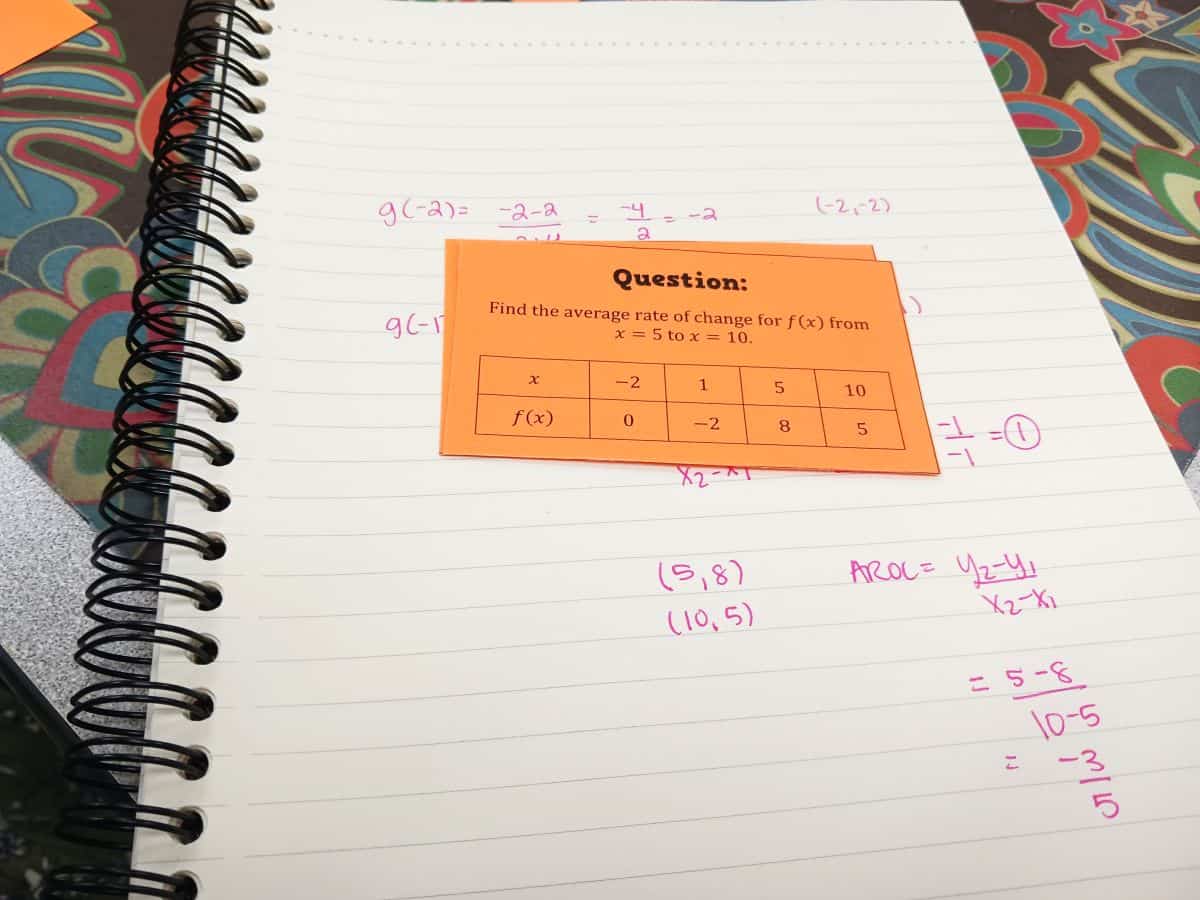 g(-2)= -2-2 = -4 = -2 (-2,-2)
2
Question:
Find the average rate of change for f(x) from
x = 5 to x = 10.
g(-1 )
x −2 1 5 10
f(x) 0 −2 8 5
-1 = 1
-1
x2-x1
(5,8) AROC = y2-y1
(10,5) x2-x1
= 5-8
10-5
= -3
5